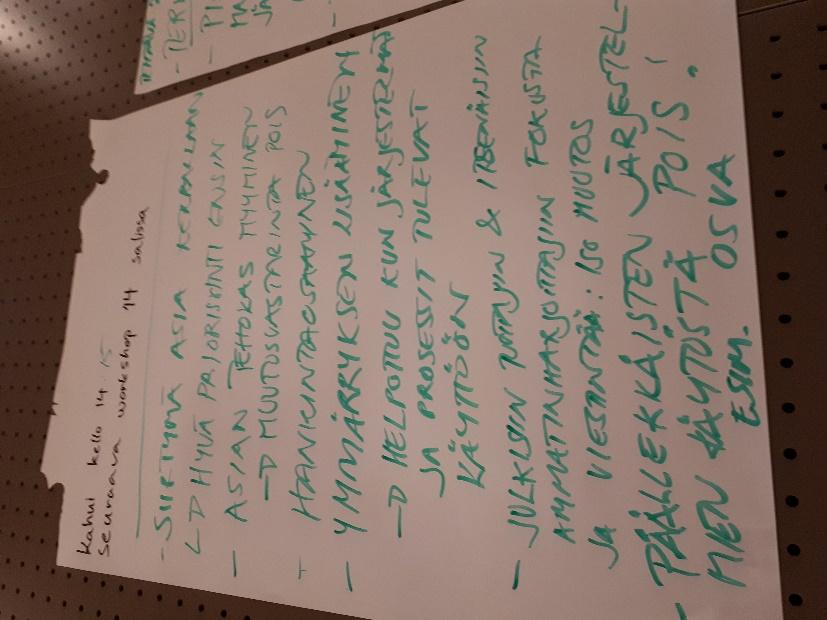 Kahvi kello 14.15
Seuraava workshop 14 salissa
- SIIRTYMÄ ASIA KERRALLAAN
↳ HYVÄ PRIORISOINTI ENSIN
- ASIAN TEHOKAS MYYMINEN
→ MUUTOSVASTARINTA POIS
+ HANKINTAOSAAMINEN
- YMMÄRRYKSEN LISÄÄMINEN
→ HELPOTTUU KUN JÄRJESTELMÄT
JA PROSESSIT TULEVAT
KÄYTTÖÖN
- JULKISIIN &
AMMATINHARJOITTAJIIN FOKUSTA
JA VIESTINTÄÄ: ISO MUUTOS
- PÄÄLLEKKÄISTEN JÄRJESTEL-
MIEN KÄYTÖSTÄ POIS!
ESIM. OSVA